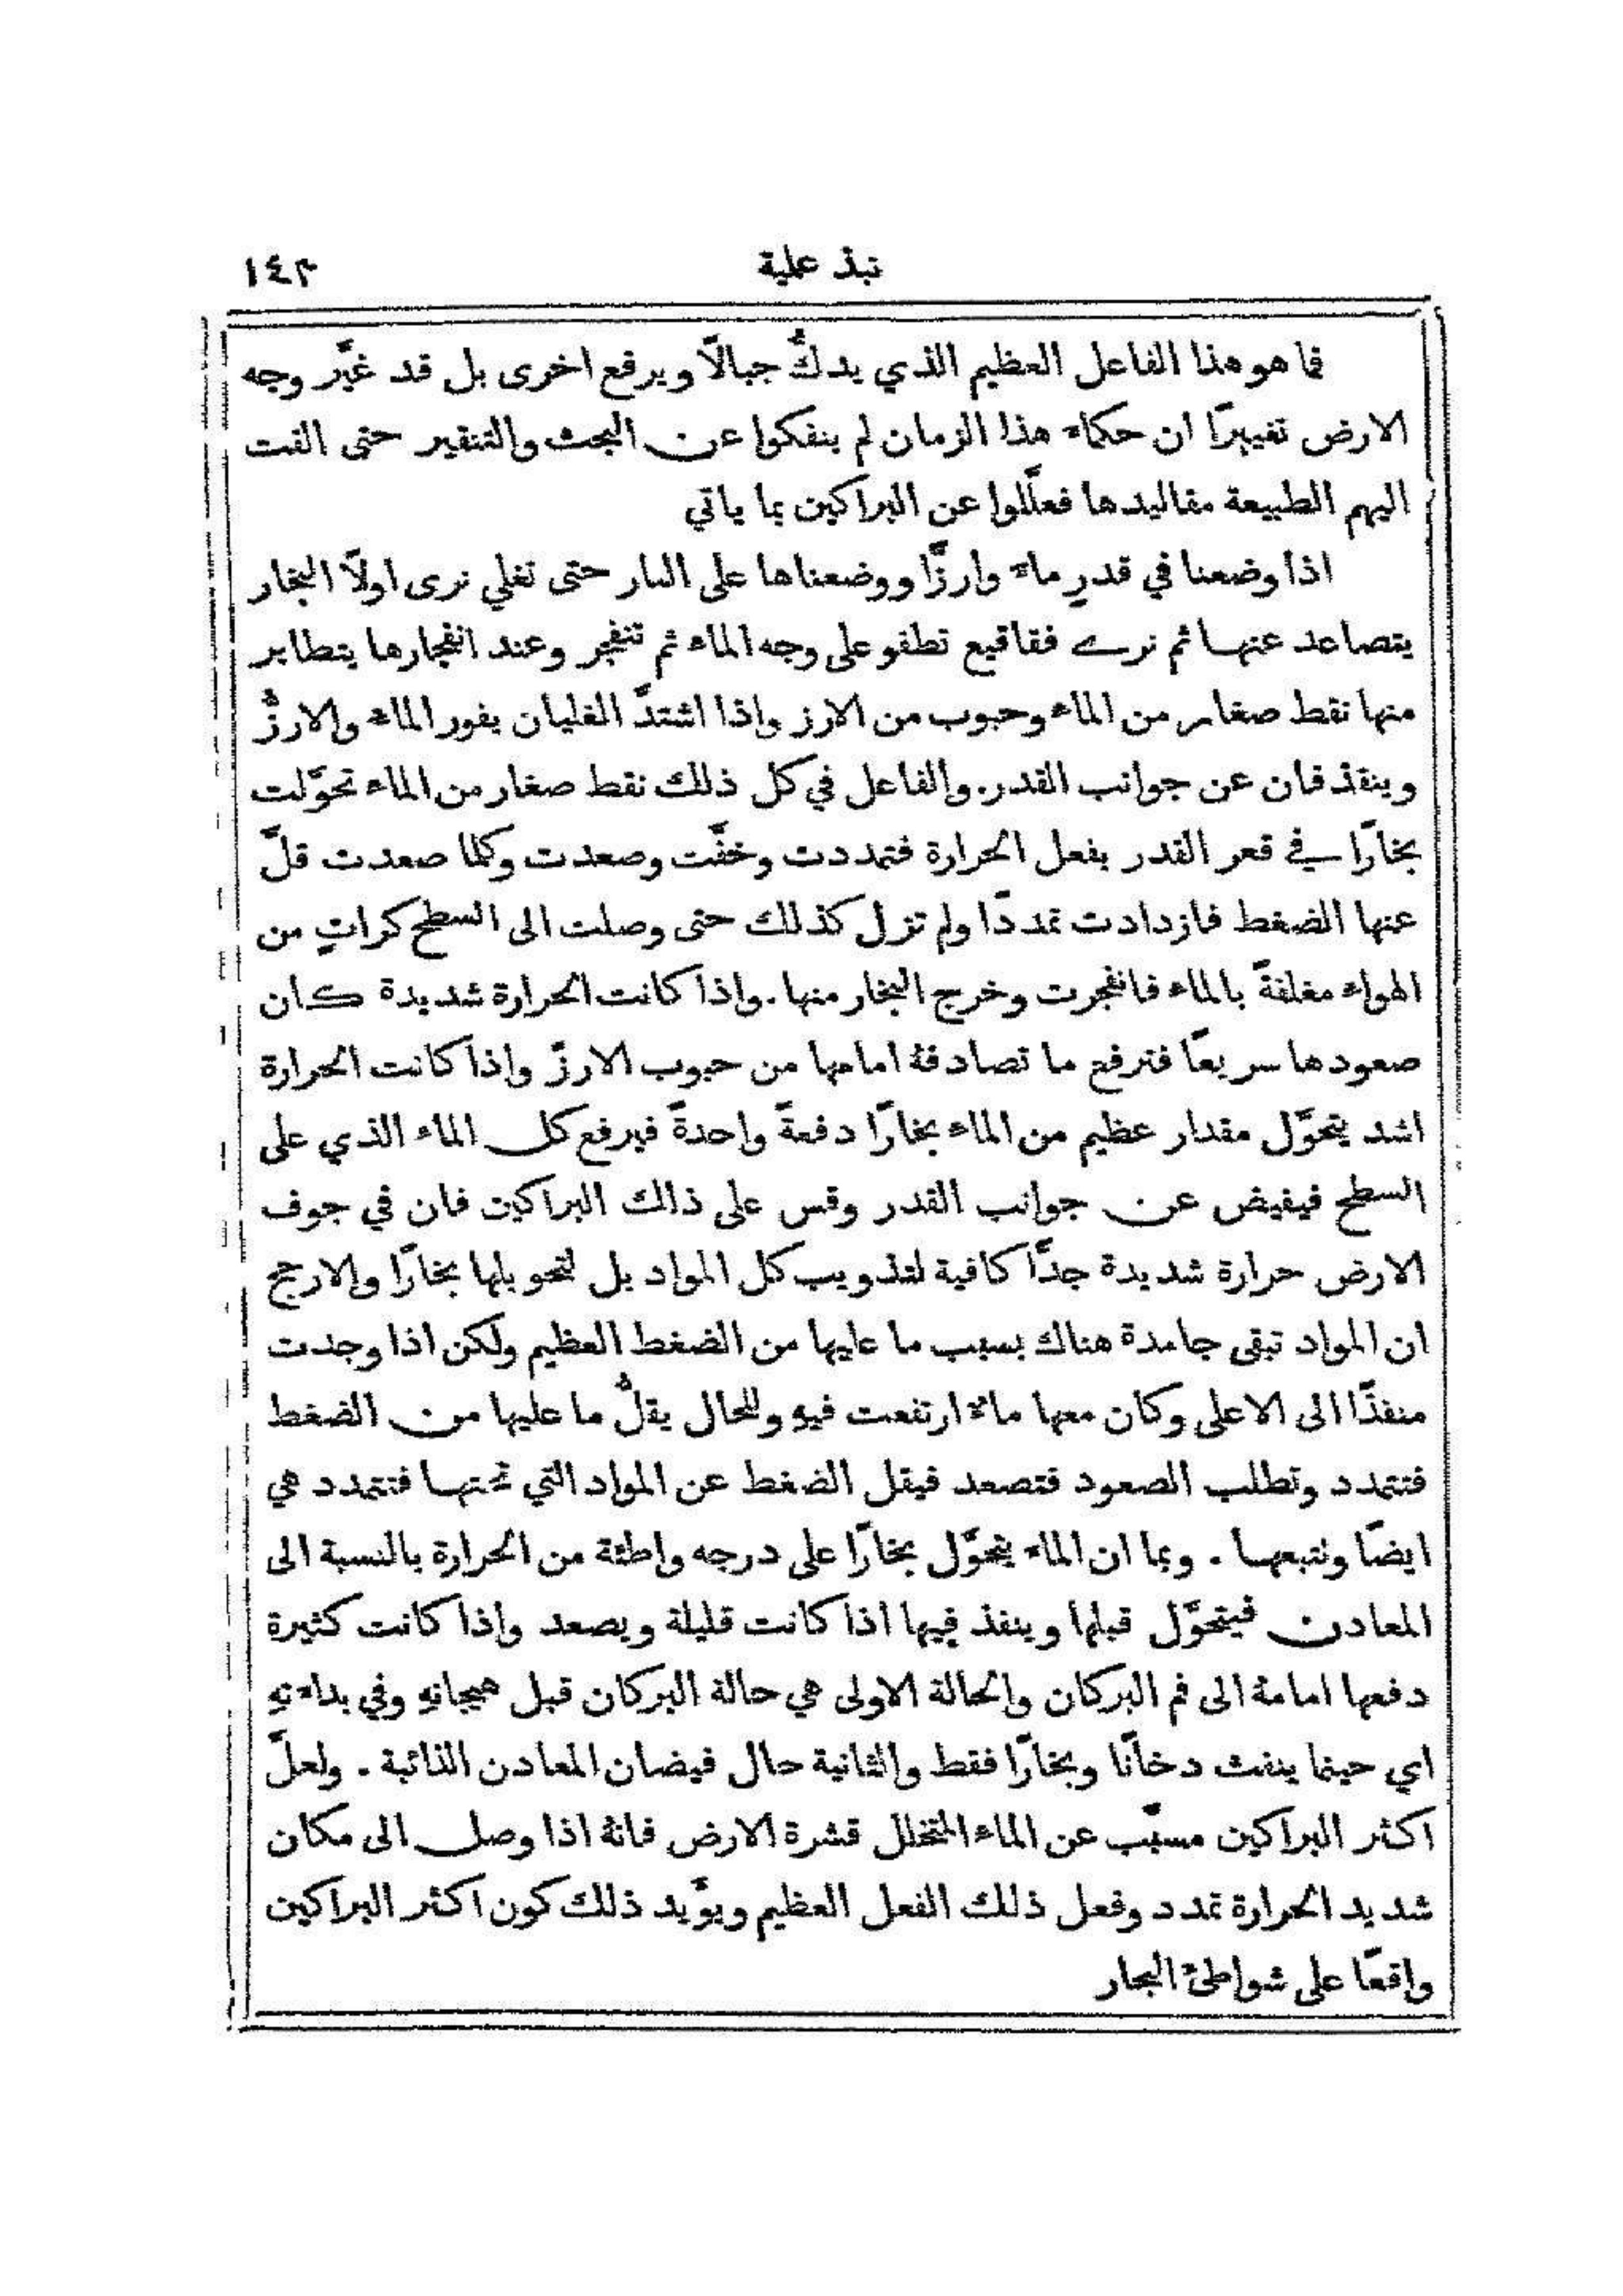 نبذ علمية ١٤٣
فما هو هذا الفاعل العظيم الذي يدكُّ جبالاً ويرفع اخرى بل قد غيَّر وجه
الارض تغييرًا ان حكماء هذا الزمان لم ينفكوا عن البحث والتنقير حتى القت
اليهم الطبيعة مقاليدها فعلَّلوا عن البراكين بما ياتي
اذا وضعنا في قدرٍ ماءً وارزًّا ووضعناها على النار حتى تغلي نرى اولاً البخار
يتصاعد عنها ثم نرى فقاقيع تطفو على وجه الماء ثم تنفجر وعند انفجارها يتطاير
منها نقط صغار من الماء وحبوب من الارز واذا اشتدَّ الغليان يفور الماء والارزُّ
وينقذفان عن جوانب القدر. والفاعل في كل ذلك نقط صغار من الماء تحوَّلت
بخارًا في قعر القدر بفعل الحرارة فتمددت وخفَّت وصعدت وكلما صعدت قلَّ
عنها الضغط فازدادت تمددًا ولم تزل كذلك حتى وصلت الى السطح كراتٍ من
الهواء مغلفةً بالماء فانفجرت وخرج البخار منها. واذا كانت الحرارة شديدة كان
صعودها سريعًا فترفع ما تصادفهُ امامها من حبوب الارزّ واذا كانت الحرارة
اشد يتحوَّل مقدار عظيم من الماء بخارًا دفعةً واحدةً فيرفع كل الماء الذي على
السطح فيفيض عن جوانب القدر وقس على ذالك البراكين فان في جوف
الارض حرارة شديدة جدًّا كافية لتذويب كل المواد بل لتحويلها بخارًا والارجح
ان المواد تبقى جامدة هناك بسبب ما عليها من الضغط العظيم ولكن اذا وجدت
منفذًا الى الاعلى وكان معها ماءٌ ارتفعت فيهِ وللحال يقلُّ ما عليها من الضغط
فتتمدد وتطلب الصعود فتصعد فيقل الضغط عن المواد التي تحتها فتتمدد هي
ايضًا وتتبعها . وبما ان الماء يتحوَّل بخارًا على درجه واطئة من الحرارة بالنسبة الى
المعادن فيتحوَّل قبلها وينفذ فيها اذا كانت قليلة ويصعد واذا كانت كثيرة
دفعها امامهُ الى فم البركان والحالة الاولى هي حالة البركان قبل هيجانهِ وفي بداءتهِ
اي حينما ينفث دخانًا وبخارًا فقط والثانية حال فيضان المعادن الذائبة . ولعلَّ
اكثر البراكين مسبَّب عن الماء المتخلل قشرة الارض فانهُ اذا وصل الى مكان
شديد الحرارة تمدد وفعل ذلك الفعل العظيم ويوَّيد ذلك كون اكثر البراكين
واقعًا على شواطئ البحار